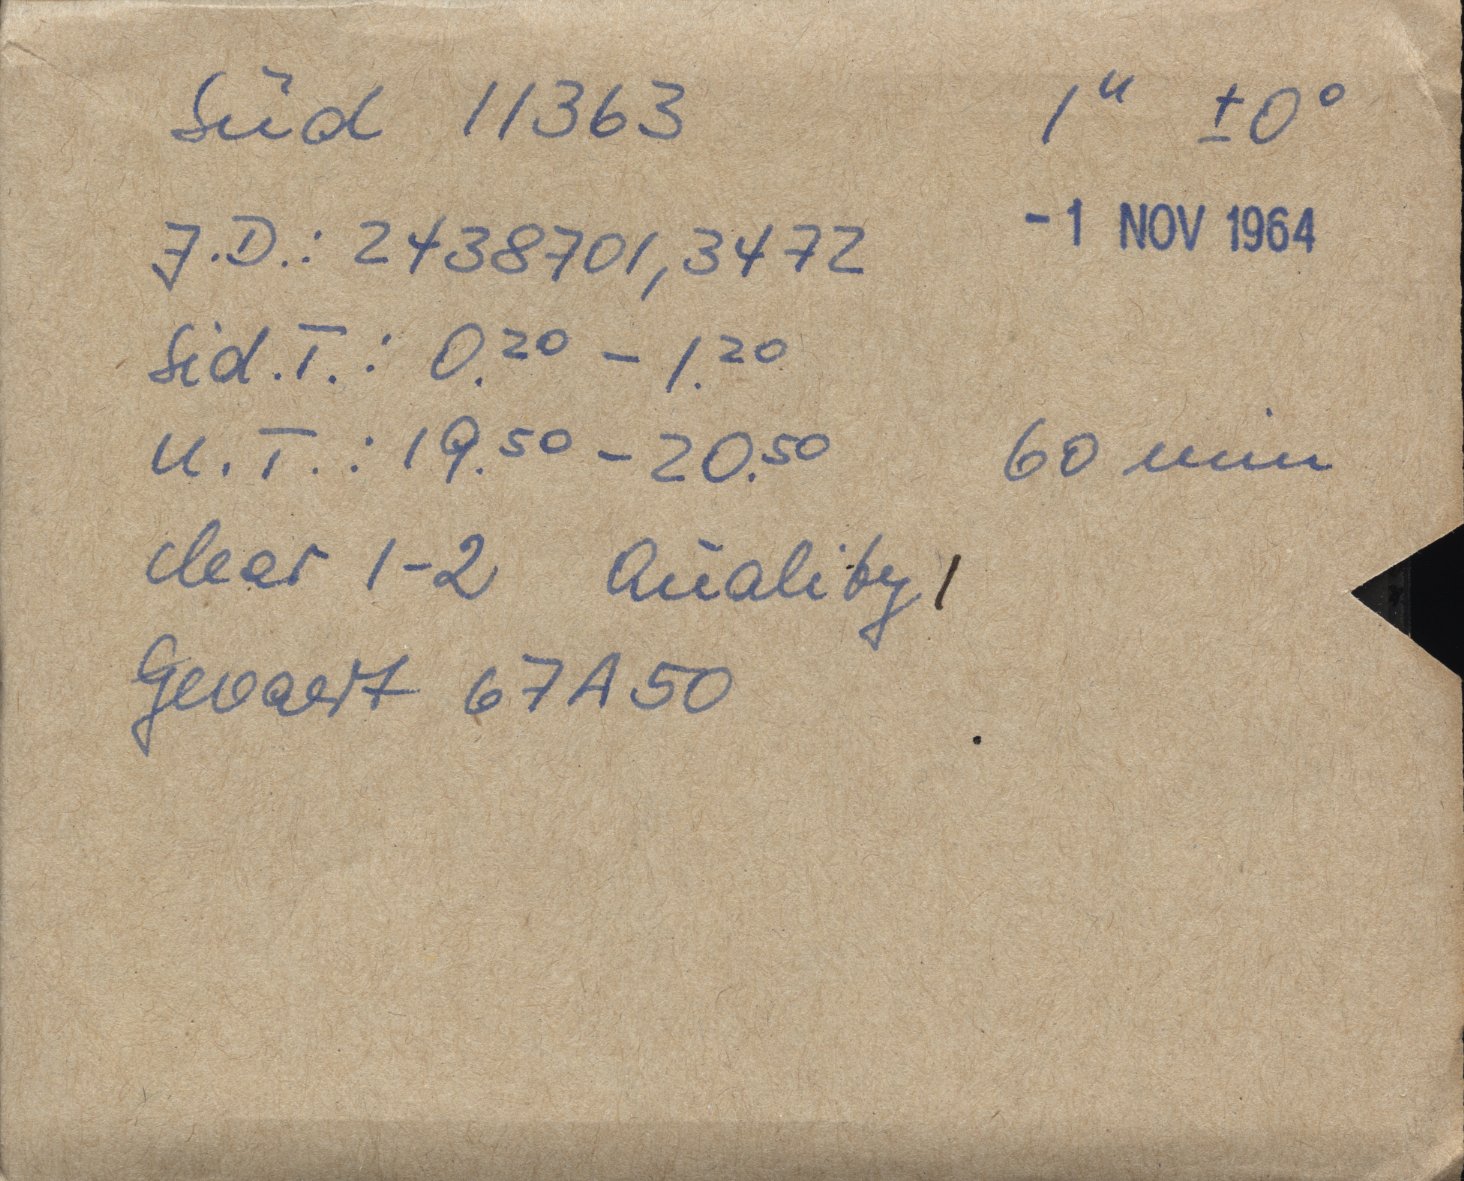 Süd 11363 1ʰ ±0°
J.D.: 2438701,3472 -1 NOV 1964
Sid.T.: 0.²⁰ – 1.²⁰
U.T.: 19.⁵⁰ – 20.⁵⁰ 60 min
clear 1-2 Quality 1
Gevaert 67A50